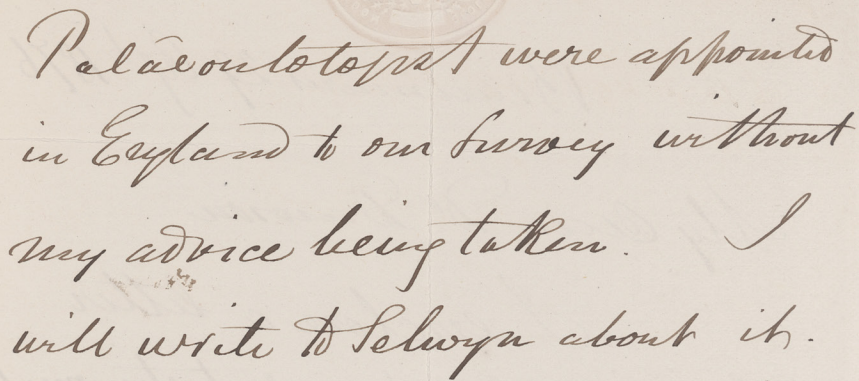 Palæontologist were appointed
in England to our Survey without
my advice being taken. I
will write to Selwyn about it.